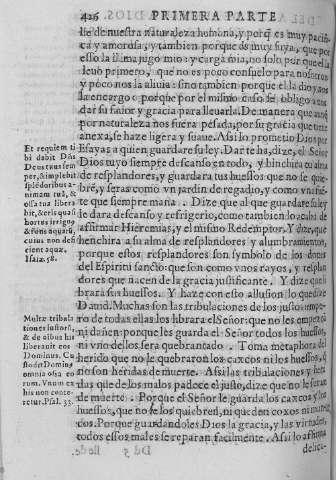 426 PRIMERA PARTE
lle de nuestra naturaleza humana, y porq̃ es muy pacifi
ca y amorosa, y tambien porque es muy suya, que por
esso la llama jugo mio: y carga mia, no solo por que el la
leuò primero, que no es poco consuelo para nosotros
y poco nos la aliuia: sino tambien porque el la dio, y nos
la encargo: porque por el mismo caso se obligo a nos
dar su fauor y gracia para lleuarla. De manera que aunq̃
por naturaleza nos fuera pesada, por la gracia que tiene
anexa, se haze ligera y suaue. Assi lo prometio Dios por
Esayas a quien guardare su ley. Dar te ha, dize, el Señor
Dios tuyo siempre descanso en todo, y hinchira tu alma
de resplandores, y guardara tus huessos que no se quie
brẽ, y seras como vn jardin de regadio, y como vna fuẽ
te que siempre mana. Dize que al que guardare su ley
le dara descanso y refrigerio, como tambien lo acaba de
affirmar Hieremias, y el mismo Redemptor. Y dize, que
henchira a su alma de resplandores y alumbramientos,
porque estos resplandores son symbolo de los dones
del Espiritu sancto: que son como vnos rayos, y resplan
dores que nacen de la gracia justificante. Y dize que li
brarà sus huessos. Y haze con esto allusion lo que dize
Dauid. Muchas son las tribulaciones de los justos: mas pe
ro de todas ellas los librara el Señor: que no les empecerã
ni dañen: porque les guarda el Señor todos los huessos,
ni vno dellos sera quebrantado. Toma metaphora del
herido que no le quebraron los caxcos ni los huessos, que
no son heridas de muerte. Assi las tribulaciones y heri
das que de los males padece el justo, dize que no le seran
de muerte. Porque el Señor le guarda los caxcos y los
huessos, que no se los quiebren, ni queden coxos ni mancos.
Porque guardandoles Dios la gracia, y las virtudes,
todos essos males se reparan facilmente. Assi lo affirma
delica-
Et requiem ti
bi dabit Dñs
Deus tuus sem
per, & implebit
splẽdoribus a-
nimam tuã, &
ossa tua libera
bit, & eris quasi
hortus irrigus
& fons aquarũ,
cuius non defi
cient aquæ.
Isaiæ. 58.
Multæ tribula
tiones iustorũ,
& de oibus his
liberauit eos
Dominus. Cu
stodit Domin9
omnia ossa eo
rum. Vnum ex
his non conte-
retur. Psal. 33.